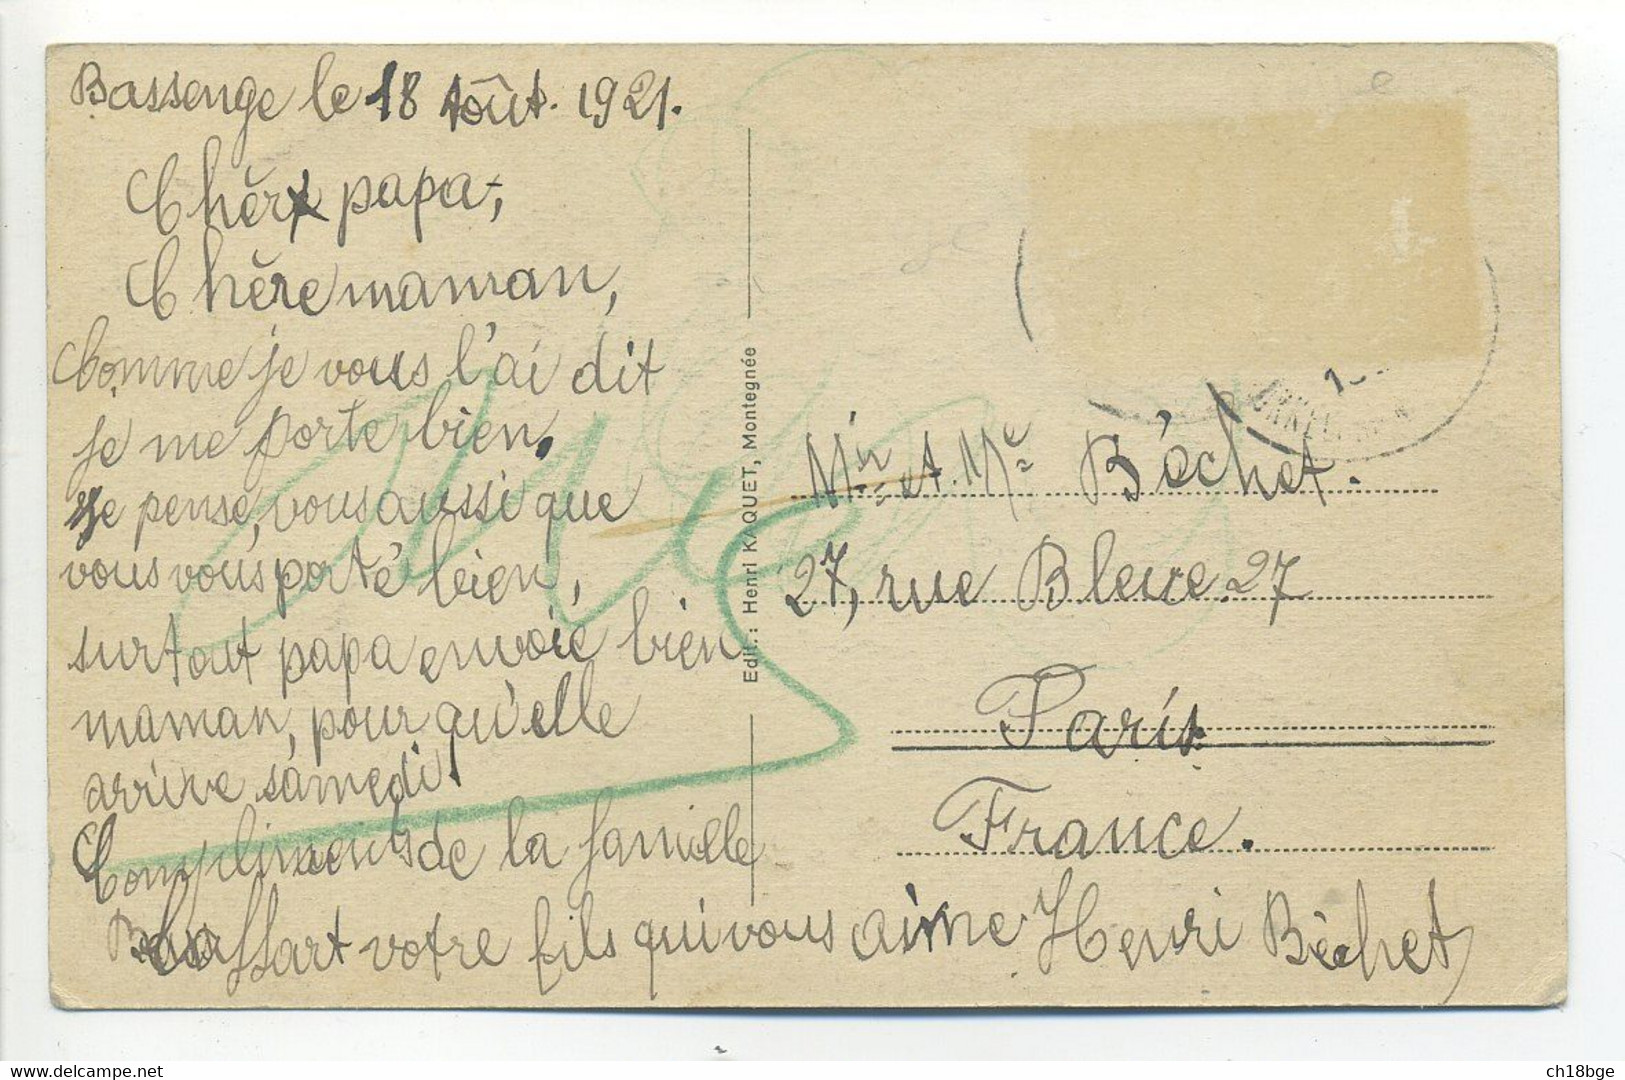 Bassenge le 18 Août. 1921.
Chèr papa,
Chère maman,
Comme je vous l'ai dit
je me porte bien.
Je pense, vous aussi que
vous vous porté bien,
surtout papa envoie bien
maman, pour qu'elle
arrive samedi.
Compliments de la famille
votre fils qui vous aime Henri Béchet
Edit.: Henri KAQUET, Montegnée
Mr et Me Béchet.
27, rue Bleue 27
Paris
France.
www.delcampe.net
ch18bge